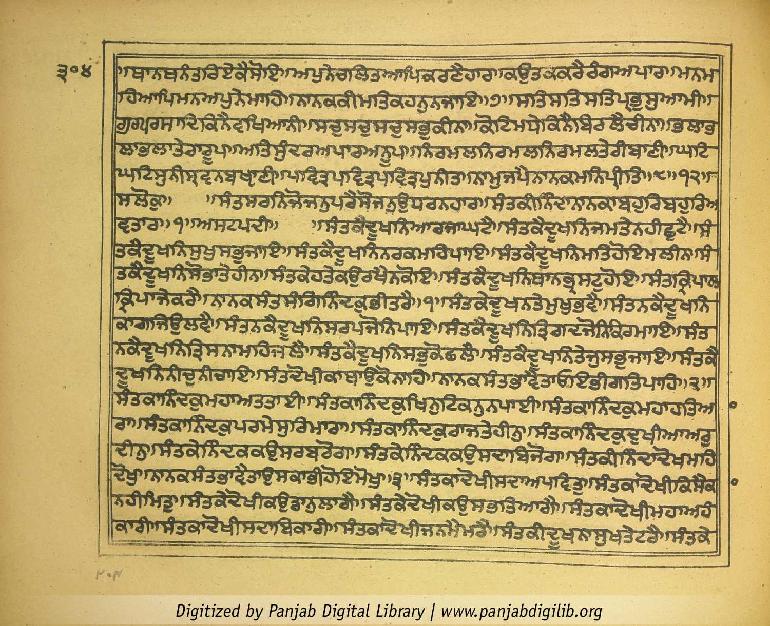 ੩੦੪
ਥਾਨਥਨੰਤਰਿਏਕੈਸੋਇ॥ਅਪੁਨੇਚਲਿਤਆਪਿਕਰਣੈਹਾਰ॥ਕਉਤਕਕਰੈਰੰਗਅਪਾਰ॥ਮਨਮ
ਹਿਆਪਿਮਨਅਪੁਨੇਮਾਹਿ॥ਨਾਨਕਕੀਮਤਿਕਹਨੁਨਜਾਇ॥੭॥ਸਤਿਸਤਿਸਤਿਪ੍ਰਭੁਸੁਆਮੀ॥
ਗੁਰਪ੍ਰਸਾਦਿਕਿਨੈਵਖਿਆਨੀ॥ਸਚੁਸਚੁਸਚੁਸਭੁਕੀਨਾ॥ਕੋਟਿਮਧੇਕਿਨੈਬਿਰਲੈਚੀਨਾ॥ਭਲਾਭ
ਲਾਭਲਾਤੇਰਾਰੂਪ॥ਅਤਿਸੁੰਦਰਅਪਾਰਅਨੂਪ॥ਨਿਰਮਲਨਿਰਮਲਨਿਰਮਲਤੇਰੀਬਾਣੀ॥ਘਟਿ
ਘਟਿਸੁਨੀਸ੍ਰਵਨਬਖ੍ਯਾਣੀ॥ਪਵਿਤ੍ਰਪਵਿਤ੍ਰਪਵਿਤ੍ਰਪੁਨੀਤ॥ਨਾਮੁਜਪੈਨਾਨਕਮਨਿਪ੍ਰੀਤਿ॥੮॥੧੨॥
ਸਲੋਕੁ॥ ਸੰਤਸਰਨਿਜੋਜਨੁਪਰੈਸੋਜਨੁਉਧਰਨਹਾਰ॥ਸੰਤਕੀਨਿੰਦਾਨਾਨਕਾਬਹੁਰਿਬਹੁਰਿਅ
ਵਤਾਰ॥੧॥ਅਸਟਪਦੀ॥ ਸੰਤਕੈਦੂਖਨਿਆਰਜਾਘਟੈ॥ਸੰਤਕੈਦੂਖਨਿਜਮਤੇਨਹੀਛੁਟੈ॥ਸੰ
ਤਕੈਦੂਖਨਿਸੁਖੁਸਭੁਜਾਇ॥ਸੰਤਕੈਦੂਖਨਿਨਰਕਮਹਿਪਾਇ॥ਸੰਤਕੈਦੂਖਨਿਮਤਿਹੋਇਮਲੀਨ॥ਸੰ
ਤਕੈਦੂਖਨਿਸੋਭਾਤੇਹੀਨ॥ਸੰਤਕੇਹਤੇਕਉਰਖੈਨਕੋਇ॥ਸੰਤਕੈਦੂਖਨਿਥਾਨਭ੍ਰਸਟੁਹੋਇ॥ਸੰਤਕ੍ਰਿਪਾਲ
ਕ੍ਰਿਪਾਜੇਕਰੈ॥ਨਾਨਕਸੰਤਸੰਗਿਨਿੰਦਕੁਭੀਤਰੈ॥੧॥ਸੰਤਕੇਦੂਖਨਤੇਮੁਖੁਭਵੈ॥ਸੰਤਨਕੈਦੂਖਨਿ
ਕਾਗਜਿਉਲਵੈ॥ਸੰਤਨਕੈਦੂਖਨਿਸਰਪਜੋਨਿਪਾਇ॥ਸੰਤਕੈਦੂਖਨਿਤ੍ਰਿਗਦਜੋਨਿਕਿਰਮਾਇ॥ਸੰਤ
ਨਕੈਦੂਖਨਿਤ੍ਰਿਸਨਾਮਹਿਜਲੈ॥ਸੰਤਕੈਦੂਖਨਿਸਭੁਕੋਛਲੈ॥ਸੰਤਕੈਦੂਖਨਿਤੇਜੁਸਭੁਜਾਇ॥ਸੰਤਕੈ
ਦੂਖਨਿਨੀਚੁਨੀਚਾਇ॥ਸੰਤਦੋਖੀਕਾਥਾਉਕੋਨਾਹਿ॥ਨਾਨਕਸੰਤਭਾਵੈਤਾਓਇਭੀਗਤਿਪਾਹਿ॥੨॥
ਸੰਤਕਾਨਿੰਦਕੁਮਹਾਅਤਤਾਈ॥ਸੰਤਕਾਨਿੰਦਕੁਖਿਨੁਟਿਕਨੁਨਪਾਈ॥ਸੰਤਕਾਨਿੰਦਕੁਮਹਾਹਤਿਆ
ਰਾ॥ਸੰਤਕਾਨਿੰਦਕੁਪਰਮੇਸੁਰਿਮਾਰਾ॥ਸੰਤਕਾਨਿੰਦਕੁਰਾਜਤੇਹੀਨੁ॥ਸੰਤਕਾਨਿੰਦਕੁਦੁਖੀਆਅਰੁ
ਦੀਨੁ॥ਸੰਤਕੇਨਿੰਦਕਕਉਸਰਬਰੋਗ॥ਸੰਤਕੇਨਿੰਦਕਕਉਸਦਾਬਿਜੋਗ॥ਸੰਤਕੀਨਿੰਦਾਦੋਖਮਹਿ
ਦੋਖੁ॥ਨਾਨਕਸੰਤਭਾਵੈਤਾਉਸਕਾਭੀਹੋਇਮੋਖੁ॥੩॥ਸੰਤਕਾਦੋਖੀਸਦਾਅਪਵਿਤੁ॥ਸੰਤਕਾਦੋਖੀਕਿਸੈਕਾ
ਨਹੀਮਿਤੁ॥ਸੰਤਕੇਦੋਖੀਕਉਡਾਨੁਲਾਗੈ॥ਸੰਤਕੇਦੋਖੀਕਉਸਭਤਿਆਗੈ॥ਸੰਤਕਾਦੋਖੀਮਹਾਅਹੰ
ਕਾਰੀ॥ਸੰਤਕਾਦੋਖੀਸਦਾਬਿਕਾਰੀ॥ਸੰਤਕਾਦੋਖੀਜਨਮੈਮਰੈ॥ਸੰਤਕੀਦੂਖਨਾਸੁਖਤੇਟਰੈ॥ਸੰਤਕੇ
Digitized by Panjab Digital Library | www.panjabdigilib.org